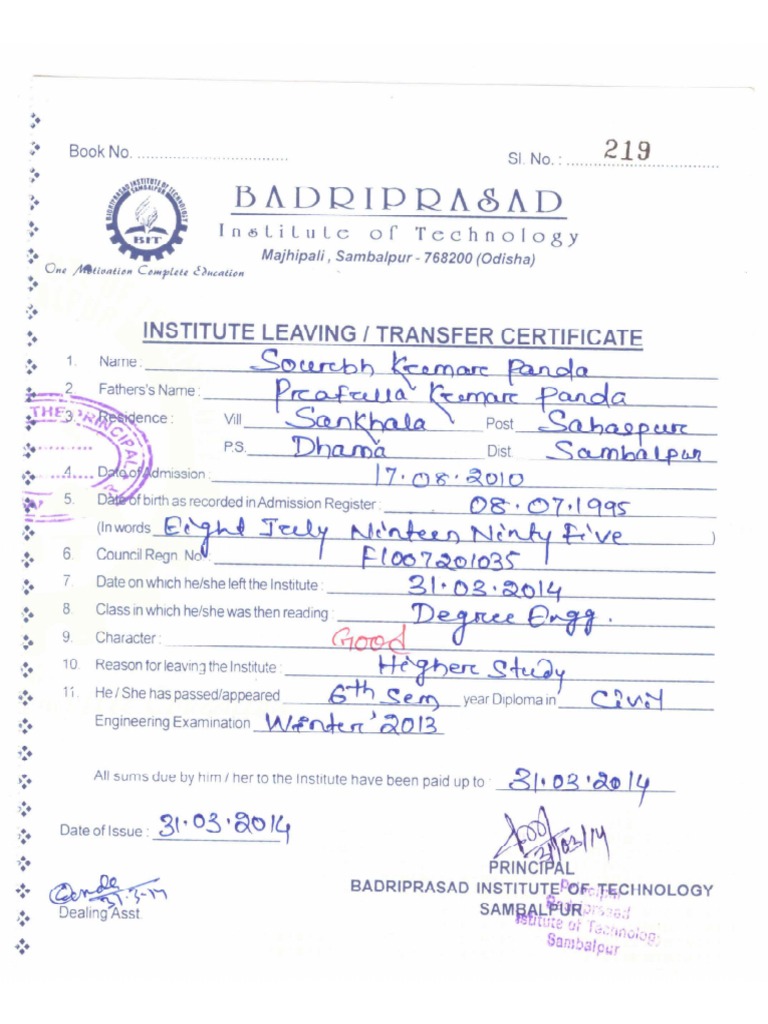 Book No. ................................
Sl. No. : 219
BADRIPRASAD INSTITUTE OF TECHNOLOGY
SAMBALPUR
BIT
One Motivation Complete Education
BADRIPRASAD
Institute of Technology
Majhipali , Sambalpur - 768200 (Odisha)
INSTITUTE LEAVING / TRANSFER CERTIFICATE
1. Name : Sourabh Kumar Panda
2. Fathers's Name : Prafulla Kumar Panda
3. Residence : Vill Sankhala Post Sahaspur
P.S. Dhama Dist. Sambalpur
THE PRINCIPAL
4. Date of Admission : 17.08.2010
5. Date of birth as recorded in Admission Register : 08.07.1995
(In words Eight July Ninteen Ninty Five )
6. Council Regn. No : F1007201035
7. Date on which he/she left the Institute : 31.03.2014
8. Class in which he/she was then reading : Degree Engg.
9. Character : Good
10. Reason for leaving the Institute : Higher Study
11. He / She has passed/appeared 6th Sem year Diploma in Civil
Engineering Examination Winter' 2013
All sums due by him / her to the Institute have been paid up to : 31.03.2014
Date of Issue : 31.03.2014
31/03/14
PRINCIPAL
BADRIPRASAD INSTITUTE OF TECHNOLOGY
SAMBALPUR
31-3-14
Dealing Asst.
Principal
Badriprasad
Institute of Technology
Sambalpur